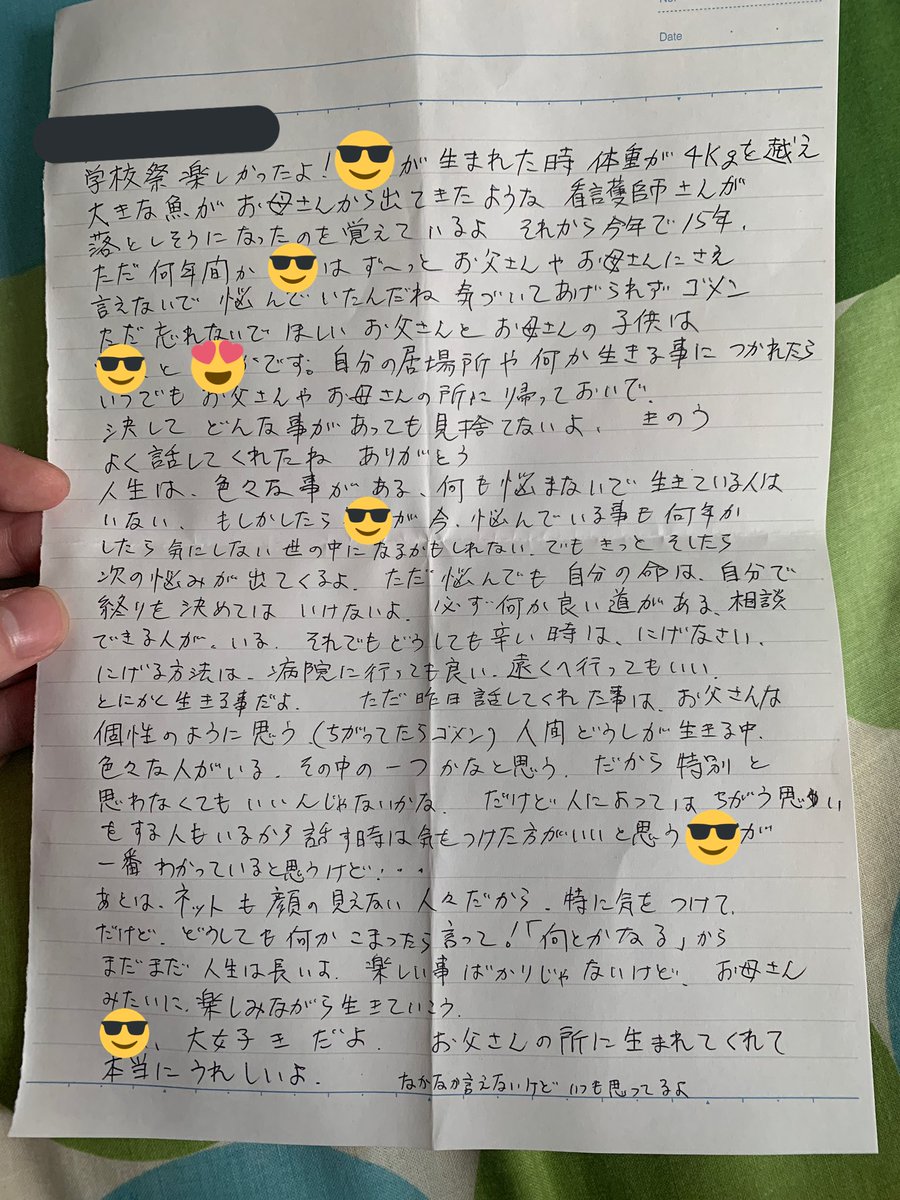 No.
Date
学校祭楽しかったよ!😎が生まれた時 体重が4Kgを越え
大きな魚がお母さんから出てきたような 看護師さんが
落としそうになったのを覚えているよ それから今年で15年、
ただ何年間か😎はず〜っと お父さんやお母さんにさえ
言えないで悩んでいたんだね 気づいてあげられずゴメン
ただ忘れないでほしい お父さんとお母さんの子供は
😎と😍かです。自分の居場所や何か生きる事につかれたら
いつでもお父さんやお母さんの所に帰っておいで、
決してどんな事があっても見捨てないよ、 きのう
よく話してくれたね ありがとう
人生は、色々な事がある、何も悩まないで生きている人は
いない、 もしかしたら😎が今、悩んでいる事も何年か
したら気にしない世の中になるかもしれない、でもきっとそしたら
次の悩みが出てくるよ、 ただ悩んでも自分の命は、自分で
終りを決めてはいけないよ、 必ず何か良い道がある、相談
できる人が。いる、それでもどうしても辛い時は、にげなさい、
にげる方法は、病院に行っても良い、遠くへ行ってもいい、
とにかく生きる事だよ、 ただ昨日話してくれた事は、お父さんな
個性のように思う(ちがってたらゴメン)人間どうしが生きる中、
色々な人がいる、その中の一つかなと思う、だから特別と
思わなくてもいいんじゃないかな、 だけど人によってはちがう思い
をする人もいるから話す時は気をつけた方がいいと思う😎が
一番わかっていると思うけど・・・
あとは、ネットも顔の見えない人々だから、特に気をつけて、
だけど、どうしても何かこまったら言って!「何とかなる」から
まだまだ人生は長いよ、楽しい事ばかりじゃないけど、お母さん
みたいに、楽しみながら生きていこう、
😎、大好きだよ、 お父さんの所に生まれてくれて
本当にうれしいよ、 なかなか言えないけどいつも思ってるよ